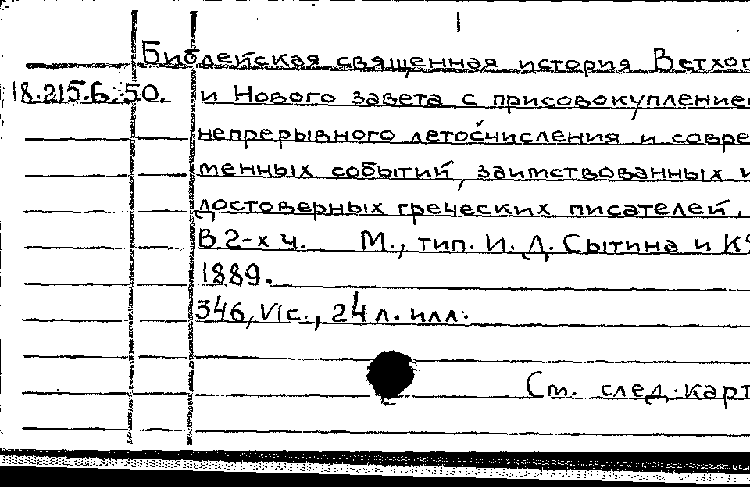 Библейская священная история Ветхог
18.215.6.50. и Нового завета с присовокуплением
непрерывного летосчисления и совре
менных событий, заимствованных и
достоверных греческих писателей.
В 2-х ч. М., тип. И. Д. Сытина и Кº
1889.
346, VI с., 24 л. илл.
См. след. карт